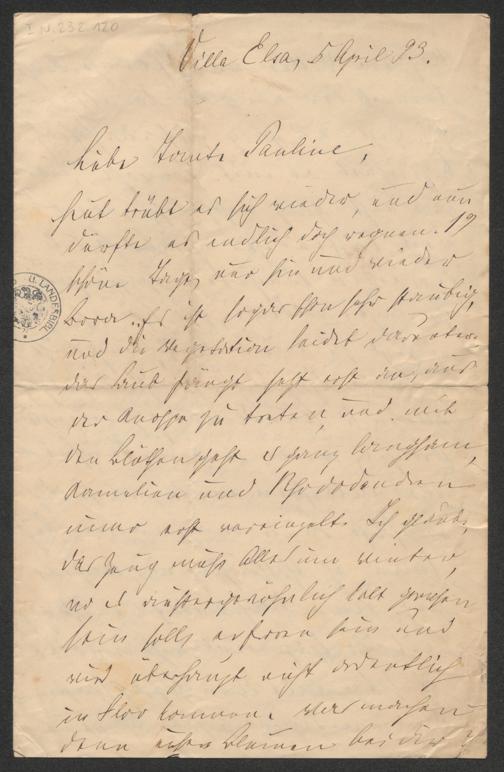 I N. 232.120
Villa Elsa, 5 April 93.
Liebe Tante Pauline,
heut trübt es sich wieder, und nun
dürfte es endlich doch regnen. 19
schöne Tage, nur hin und wieder
Bora. Es ist sogar schon sehr staubig,
und die Vegetation leidet darunter.
das Laub fängt jetzt erst an, aus
der Knospe zu treten, und mit
den Blüthen geht es ganz langsam,
Kamelien und Rhododendren
immer erst vereinzelt. Ich glaube,
das Zeug muß Alles im Winter,
wo es außergewöhnlich kalt gewesen
sein soll, erfroren sein und
wird überhaupt nicht ordentlich
in Flor kommen. Was machen
denn Blumen bei der
U. LANDESBIBL